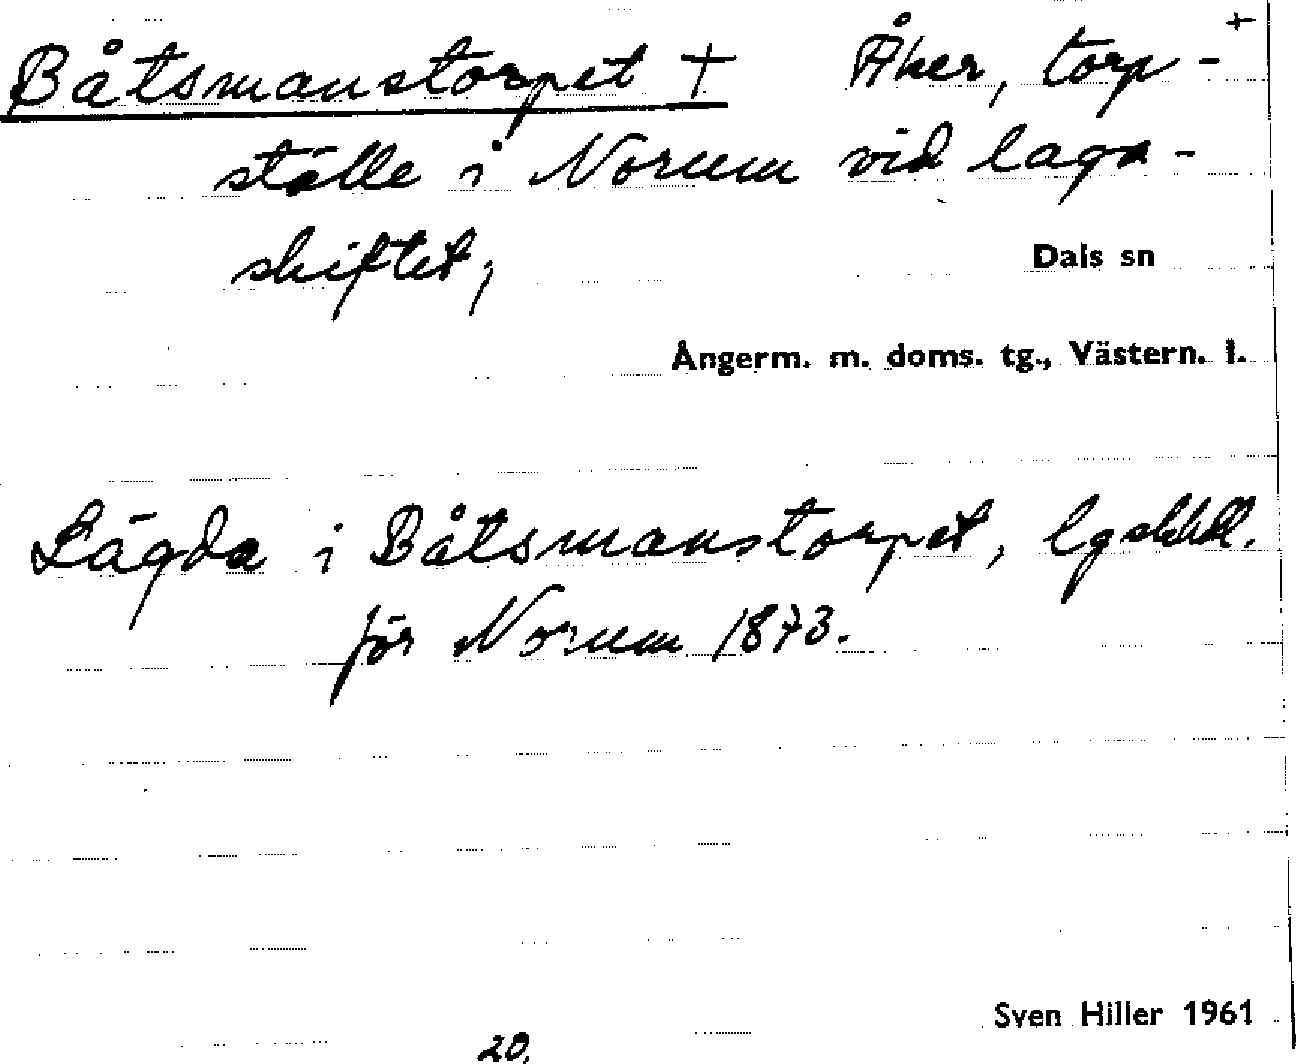 Båtsmanstorpet + Åker, torp- +
ställe i Norum vid laga-
skiftet,
Dals sn
Ångerm. m. doms. tg., Västern. l.
Lägda i Båtsmanstorpet,
för Norum 1873.
Sven Hiller 1961
20.